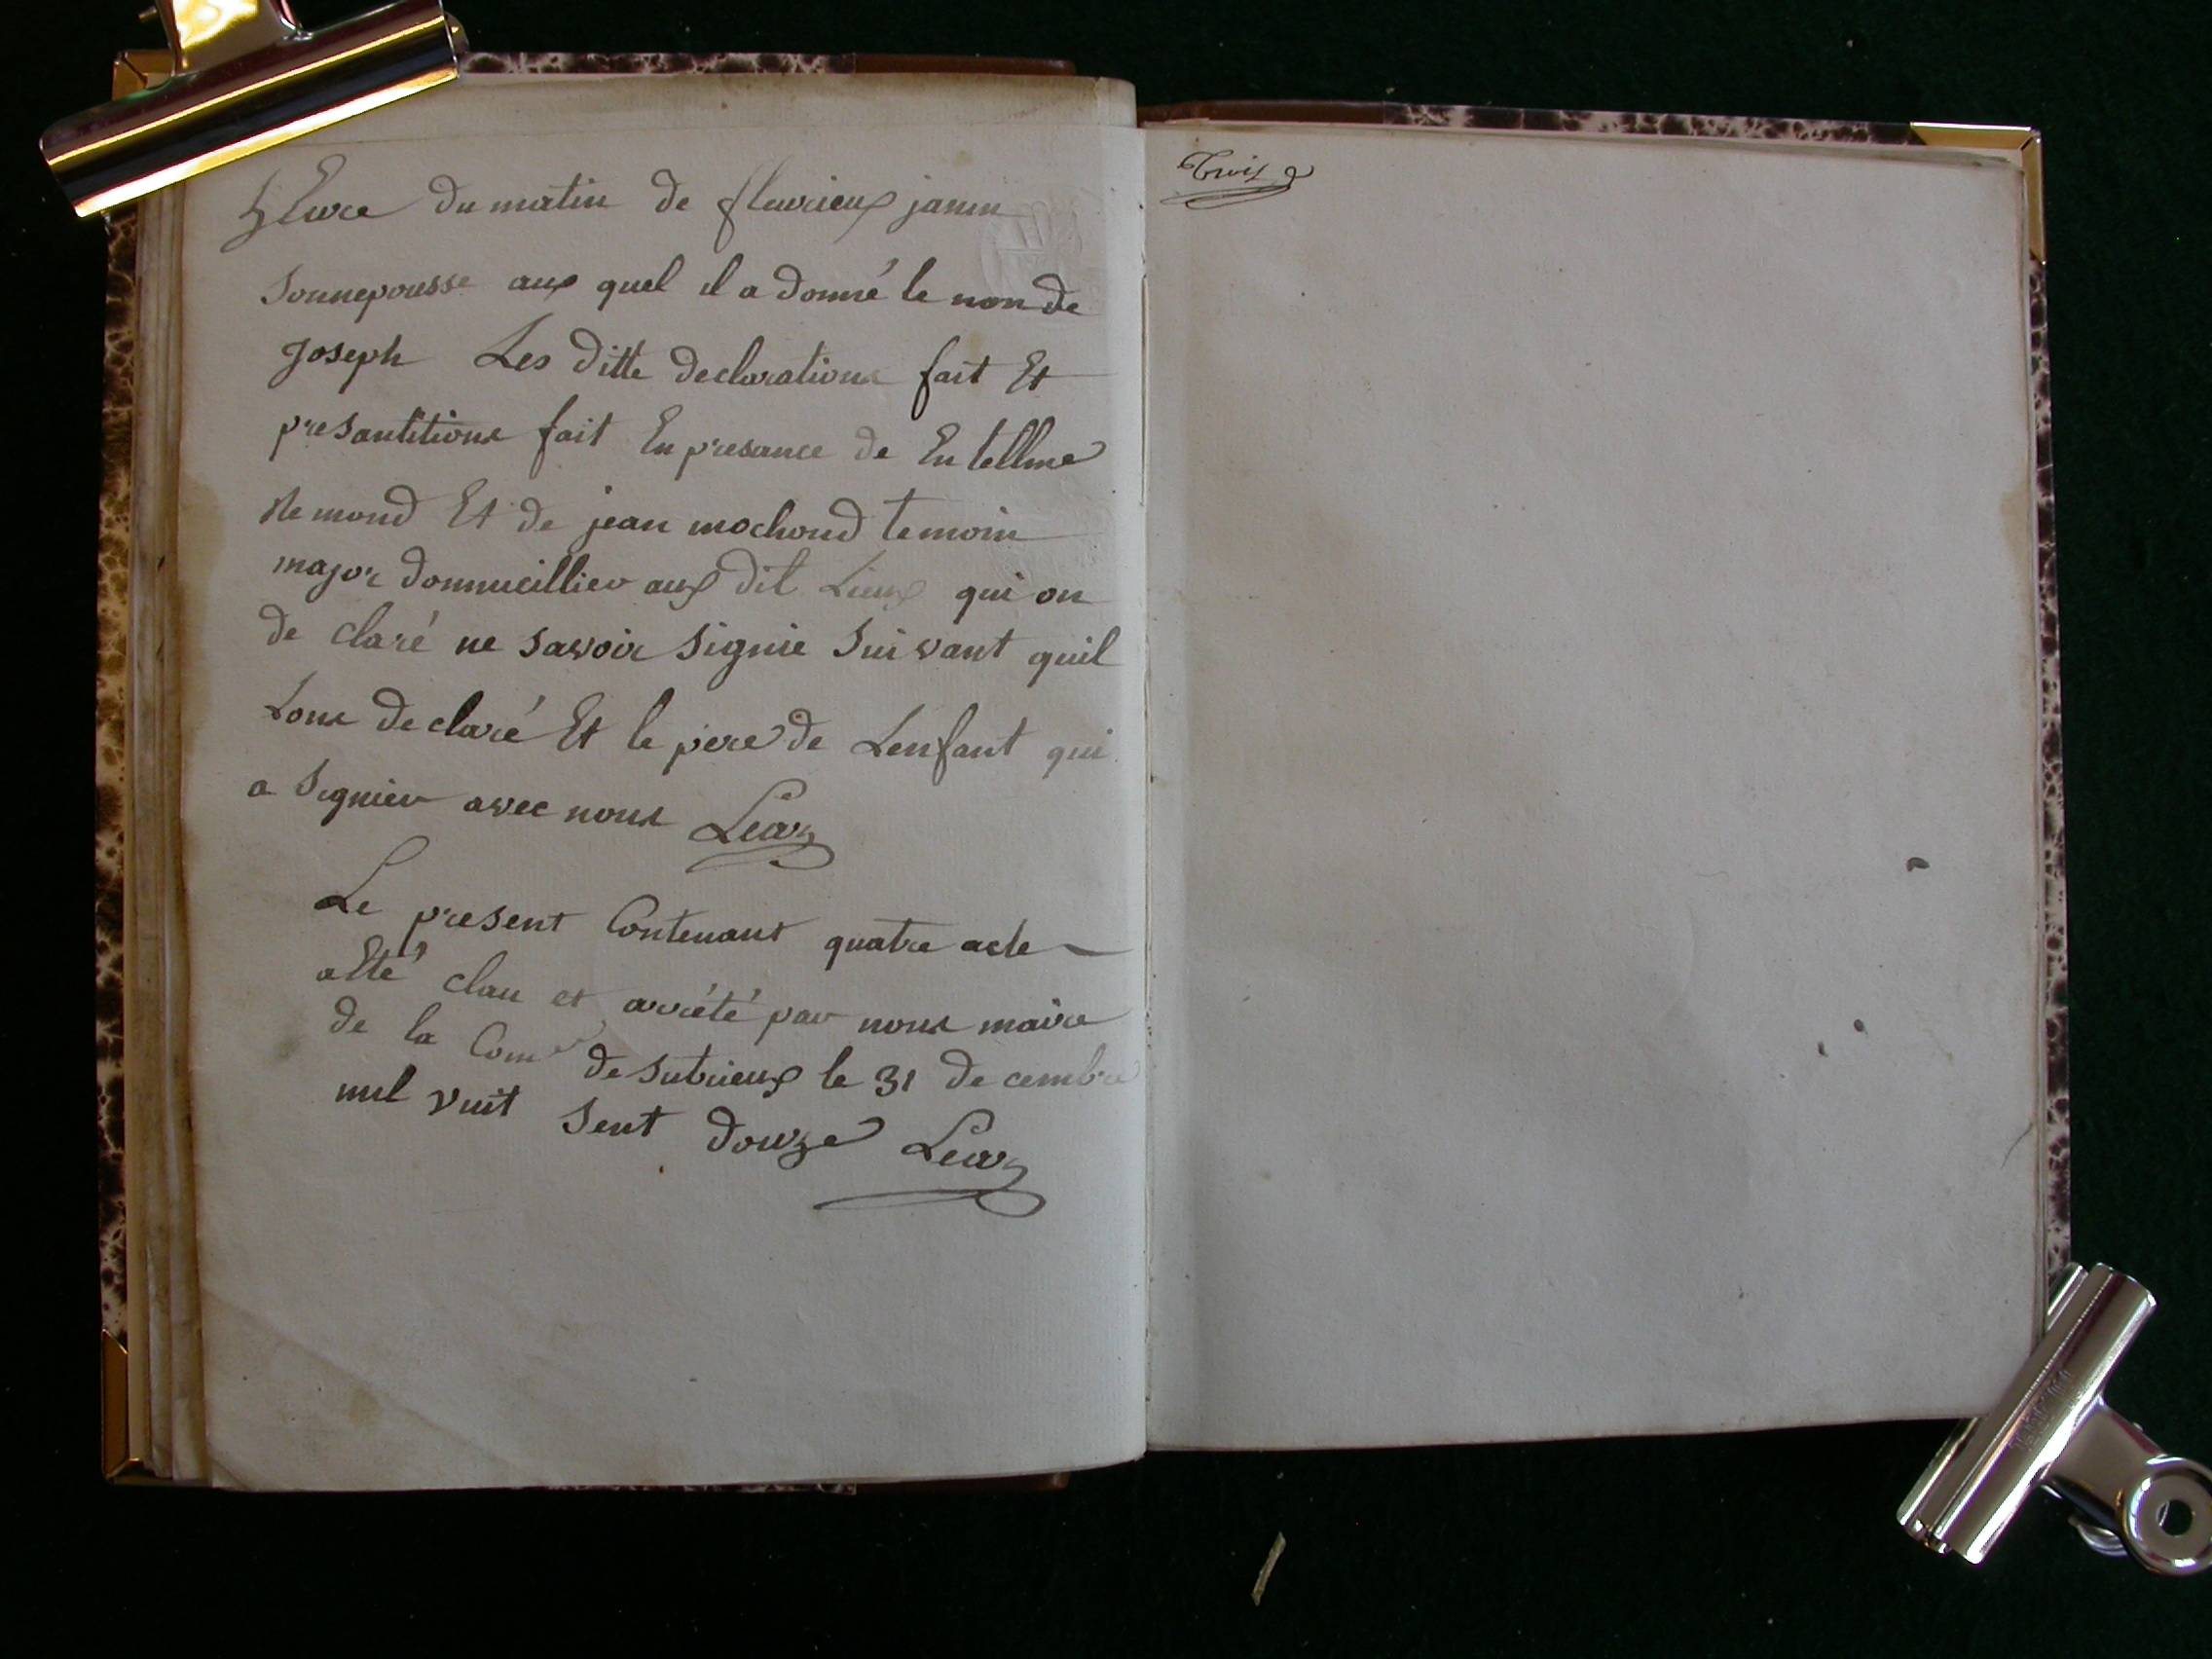 5 Eure du matin de fleurieux janin
Sonnepousse aux quel il a donné le non de
Joseph Les ditte declarations fait Et
presantitions fait En presance de Entellme
Remond Et de jean mochond temoin
major domnucillier aux dit Lieux qui on
de claré ne savoir signie Suivant quil
Lons declaré Et le pere de Lenfant qui
a Signier avec nous
Le present Contenant quatre acte
a Eté clau et arrété par nous maire
de la Com de Sutrieux le 31 decembre
mil vuit Sent douze
Trois